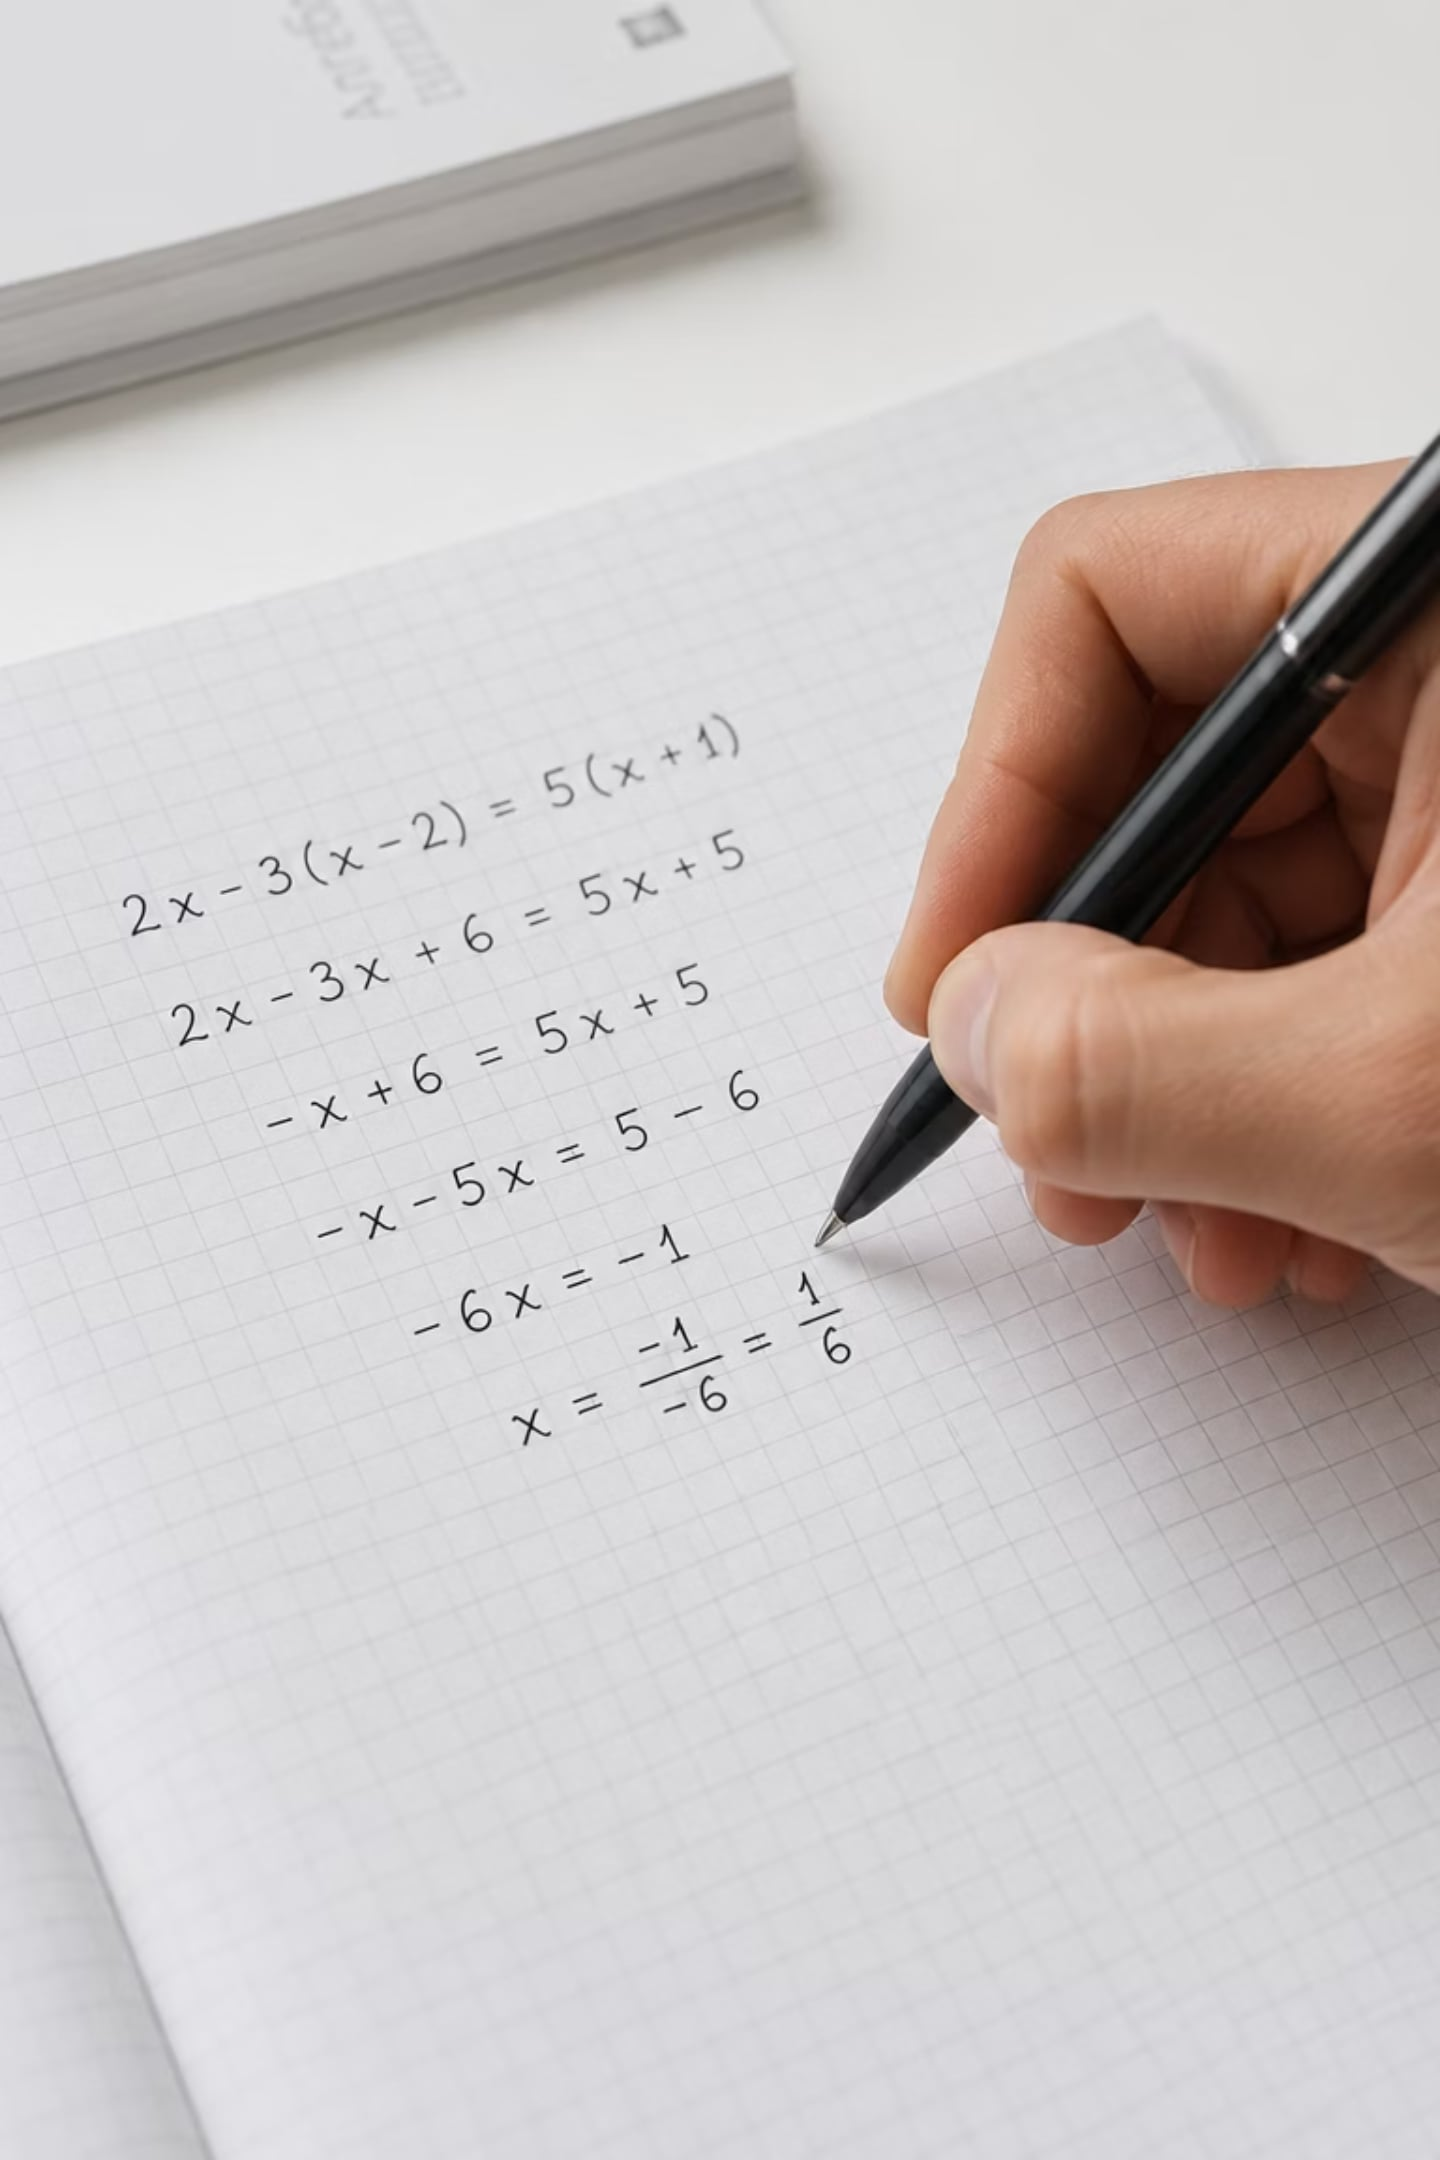 2x - 3(x - 2) = 5(x + 1)
2x - 3x + 6 = 5x + 5
-x + 6 = 5x + 5
-x - 5x = 5 - 6
-6x = -1
x = -1/-6 = 1/6